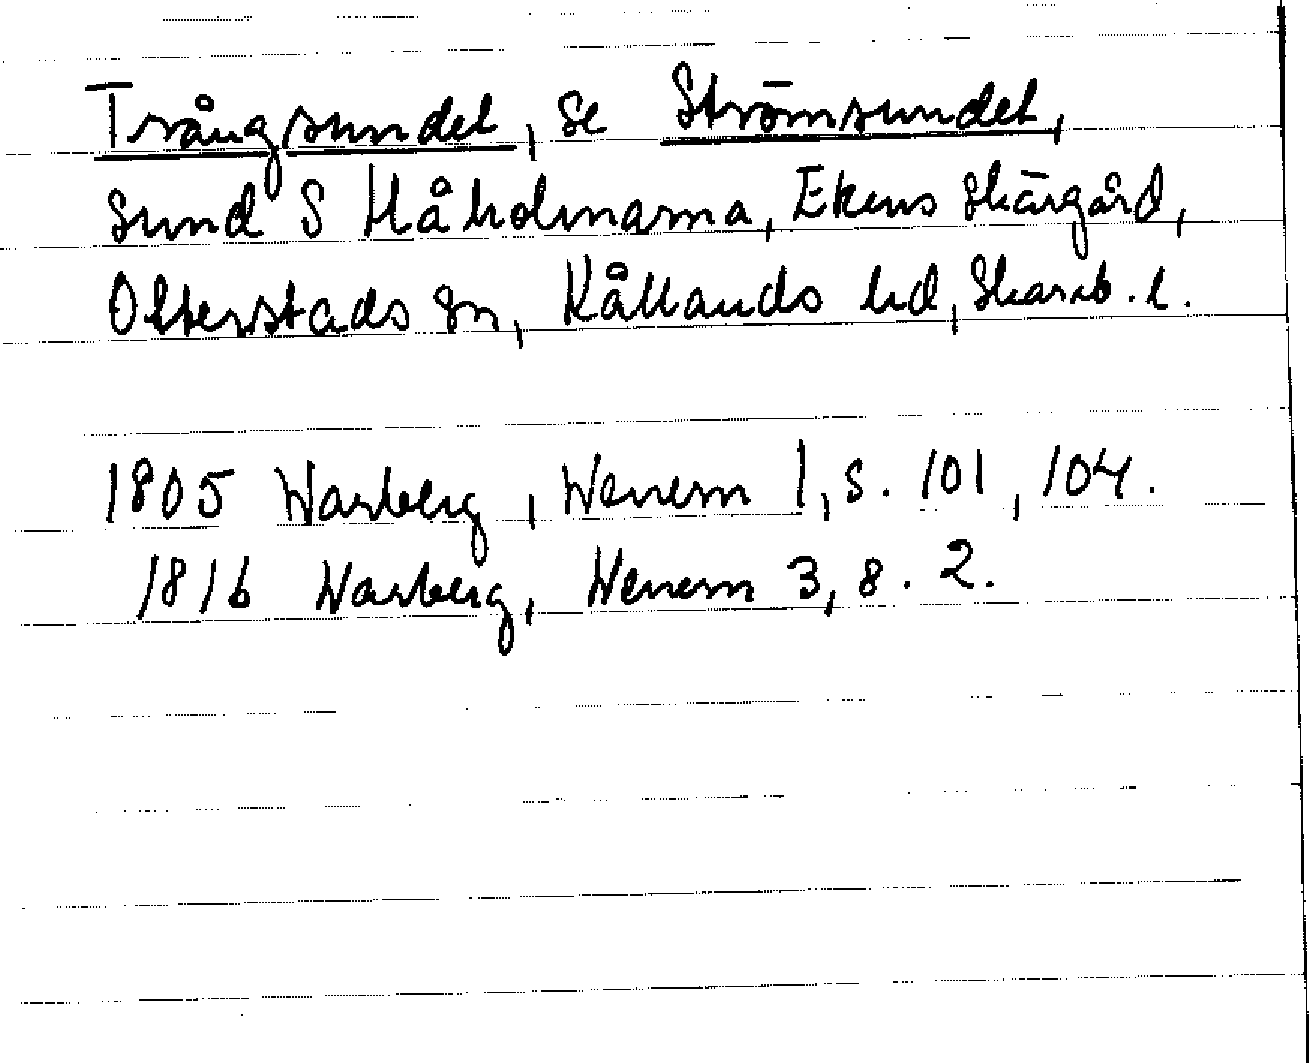 Trångsundet, se Strömsundet,
sund S Håholmarna, Ekens skärgård,
Otterstads sn, Kållands hd, Skarab. l.
1805 Warberg, Wenern 1, s. 101, 104.
1816 Warberg, Wenern 3, s. 2.